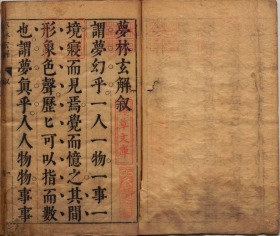 夢林玄解敘
謂夢幻乎一人一物一事一
境寢而見焉覺而憶之其間
形象色聲歷歷可以指而數
也謂夢真乎人人物物事事